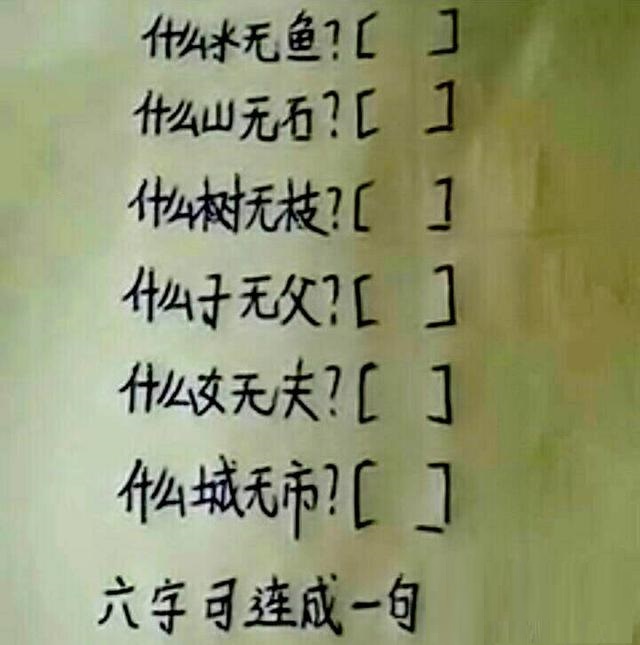 什么水无鱼?[ ]
什么山无石?[ ]
什么树无枝?[ ]
什么子无父?[ ]
什么女无夫?[ ]
什么城无市?[ ]
六字可连成一句